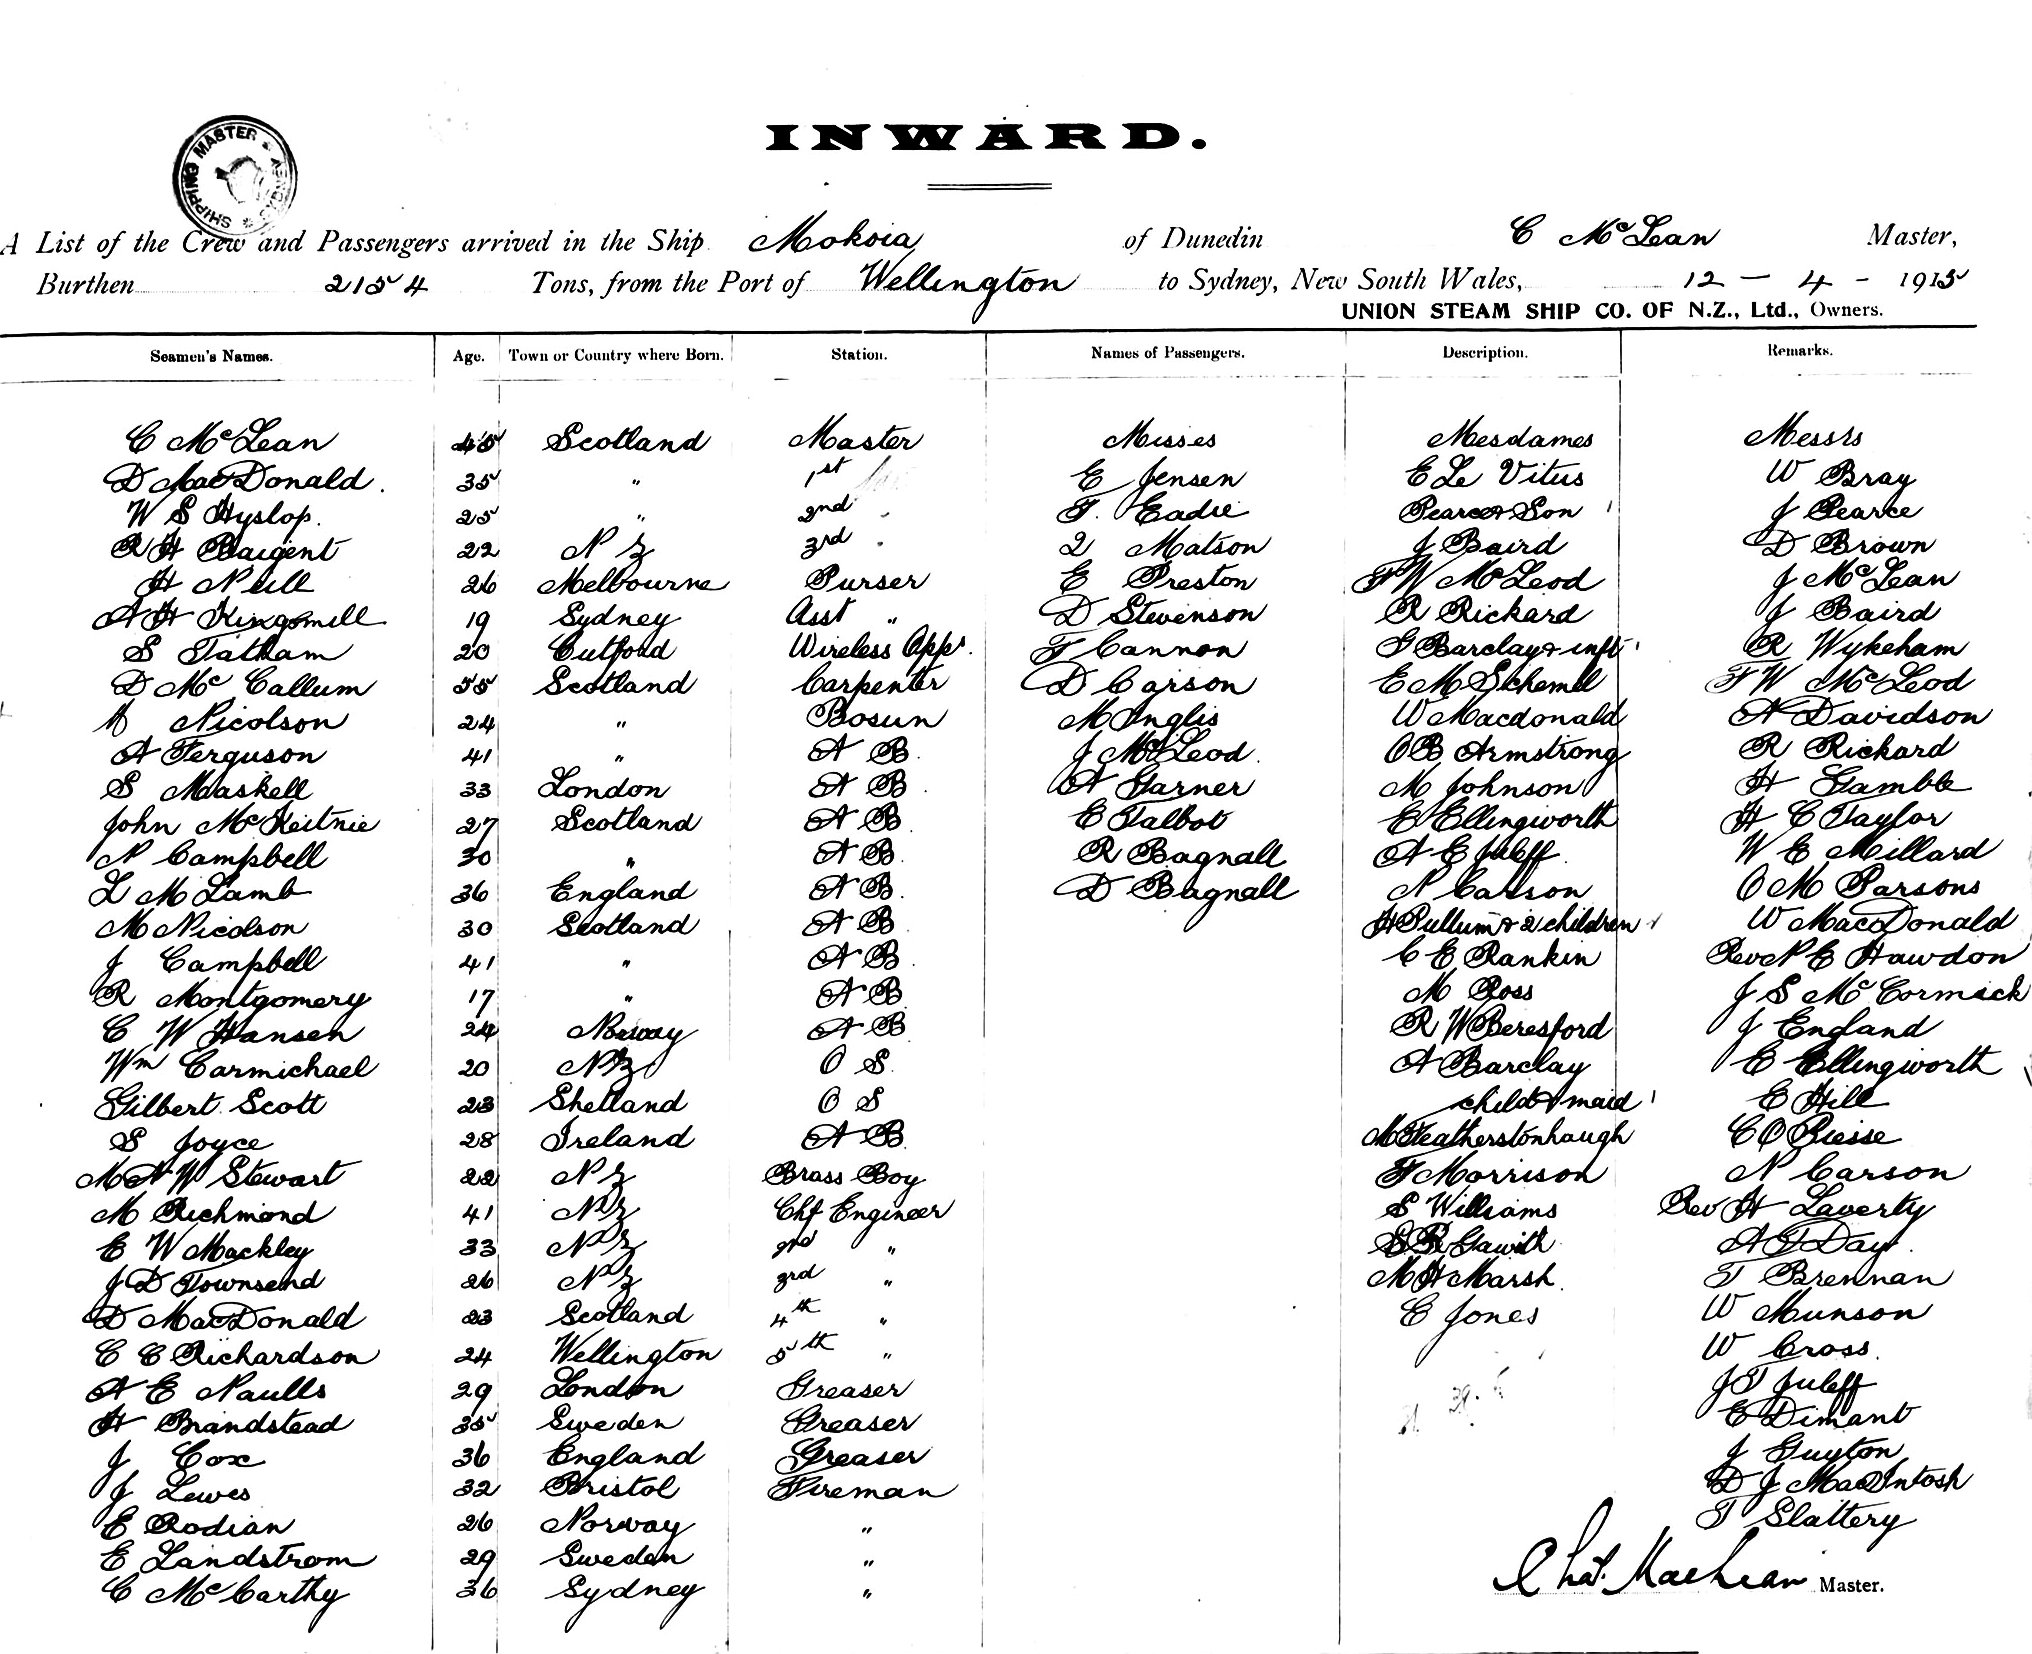 SHIPPING MASTER * SYDNEY *
INWARD.
A List of the Crew and Passengers arrived in the Ship Mokoia of Dunedin C McLean Master,
Burthen 2154 Tons, from the Port of Wellington to Sydney, New South Wales, 12 - 4 - 1915
UNION STEAM SHIP CO. OF N.Z., Ltd., Owners.
Seamen's Names. Age. Town or Country where Born. Station. Names of Passengers. Description. Remarks.
C McLean 45 Scotland Master Misses Mesdames Messrs
D MacDonald. 35 " 1st E Jensen E Le Vitus W Bray
W S Hyslop. 25 " 2nd F. Eadie Pearce & Son J Pearce
R H Baigent 22 N Z 3rd 2 Matson J Baird D Brown
H Neill 26 Melbourne Purser E Preston F W McLeod J McLean
A H Kingsmill 19 Sydney Asst " D Stevenson R Rickard J Baird
S Tatham 20 Cutford Wireless Oppr. F Cannon G Barclay & inft R Wykeham
D McCallum 55 Scotland Carpenter D Carson E M Schemel F W McLeod
M Nicolson 24 " Bosun M Inglis W Macdonald N Davidson
A Ferguson 41 " A B J McLeod O B Armstrong R Rickard
S Maskell 33 London A B A Garner M Johnson H Gamble
John McKeitnie 27 Scotland A B E Talbot E Ellingworth H C Taylor
N Campbell 30 " A B R Bagnall A E Juleff W E Millard
L M Lamb 36 England A B D Bagnall N Carson O M Parsons
M Nicolson 30 Scotland A B H Pullum & 2 children W MacDonald
J Campbell 41 " A B C E Rankin Rev N E Hawdon
R Montgomery 17 " A B M Ross J S McCormick
C W Hansen 24 Norway A B R W Beresford J England
Wm Carmichael 20 N Z O S A Barclay E Ellingworth
Gilbert Scott 23 Shetland O S child & maid E Hill
S Joyce 28 Ireland A B M Featherstonhaugh C O Biesse
M A W Stewart 22 N Z Brass Boy F Morrison N Carson
M Richmond 41 N Z Chf Engineer S Williams Rev H Laverty
E W Mackley 33 N Z 2nd " S B Gawith A T Day
J D Townsend 26 N Z 3rd " M H Marsh T Brennan
D MacDonald 23 Scotland 4th " E Jones W Munson
C C Richardson 24 Wellington 5th " W Cross
A E Naulls 29 London Greaser J T Juleff
H Brandstead 35 Sweden Greaser E Dimant
J Cox 36 England Greaser J Guyton
J Lewes 32 Bristol Fireman D J MacIntosh
E Rodian 26 Norway " T Slattery
E Landstrom 29 Sweden "
C McCarthy 36 Sydney "
Chas. MacLean Master.